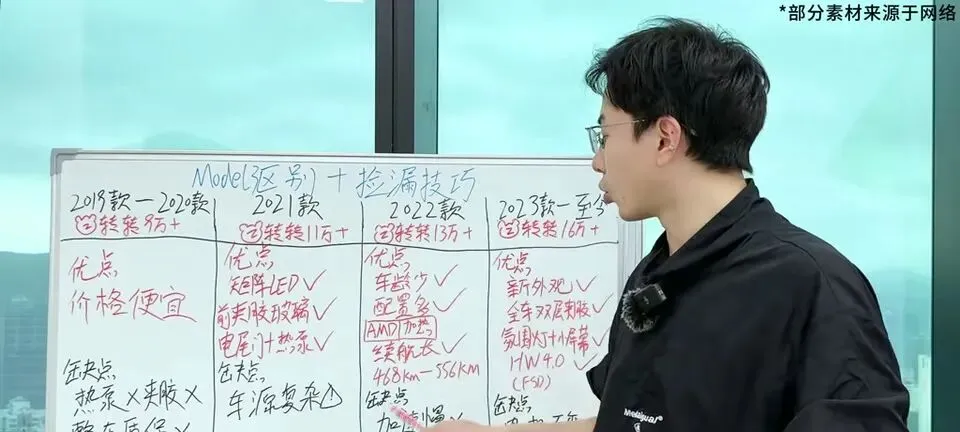 *部分素材来源于网络
Model3区别+捡漏技巧
2019款—2020款
转转9万+
优点
价格便宜
缺点
热泵×夹胶×
2021款
转转11万+
优点
矩阵LED✓
前夹胶玻璃✓
电尾门+热泵✓
缺点
车源复杂
2022款
转转13万+
优点
车龄少✓
配置多✓
AMD 加热
续航长✓
468km—556km
缺点
加速慢✓
2023款—至今
转转16万+
优点
新外观✓
全车双层夹胶✓
氛围灯+小屏幕
HW4.0✓
(FSD)
缺点